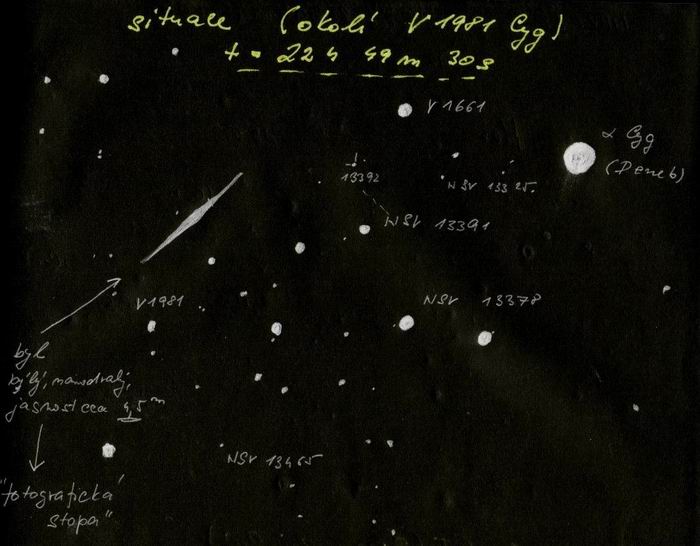 situace (okolí V 1981 Cyg)
t = 22 h 49 m 30 s
V 1661
α Cyg
(Deneb)
13392
NSV 13325.
NSV 13391
V 1981
NSV 13378
byl
bílý, namodralý,
jasnost cca 4,5 m
NSV 13465
"fotografická
stopa"